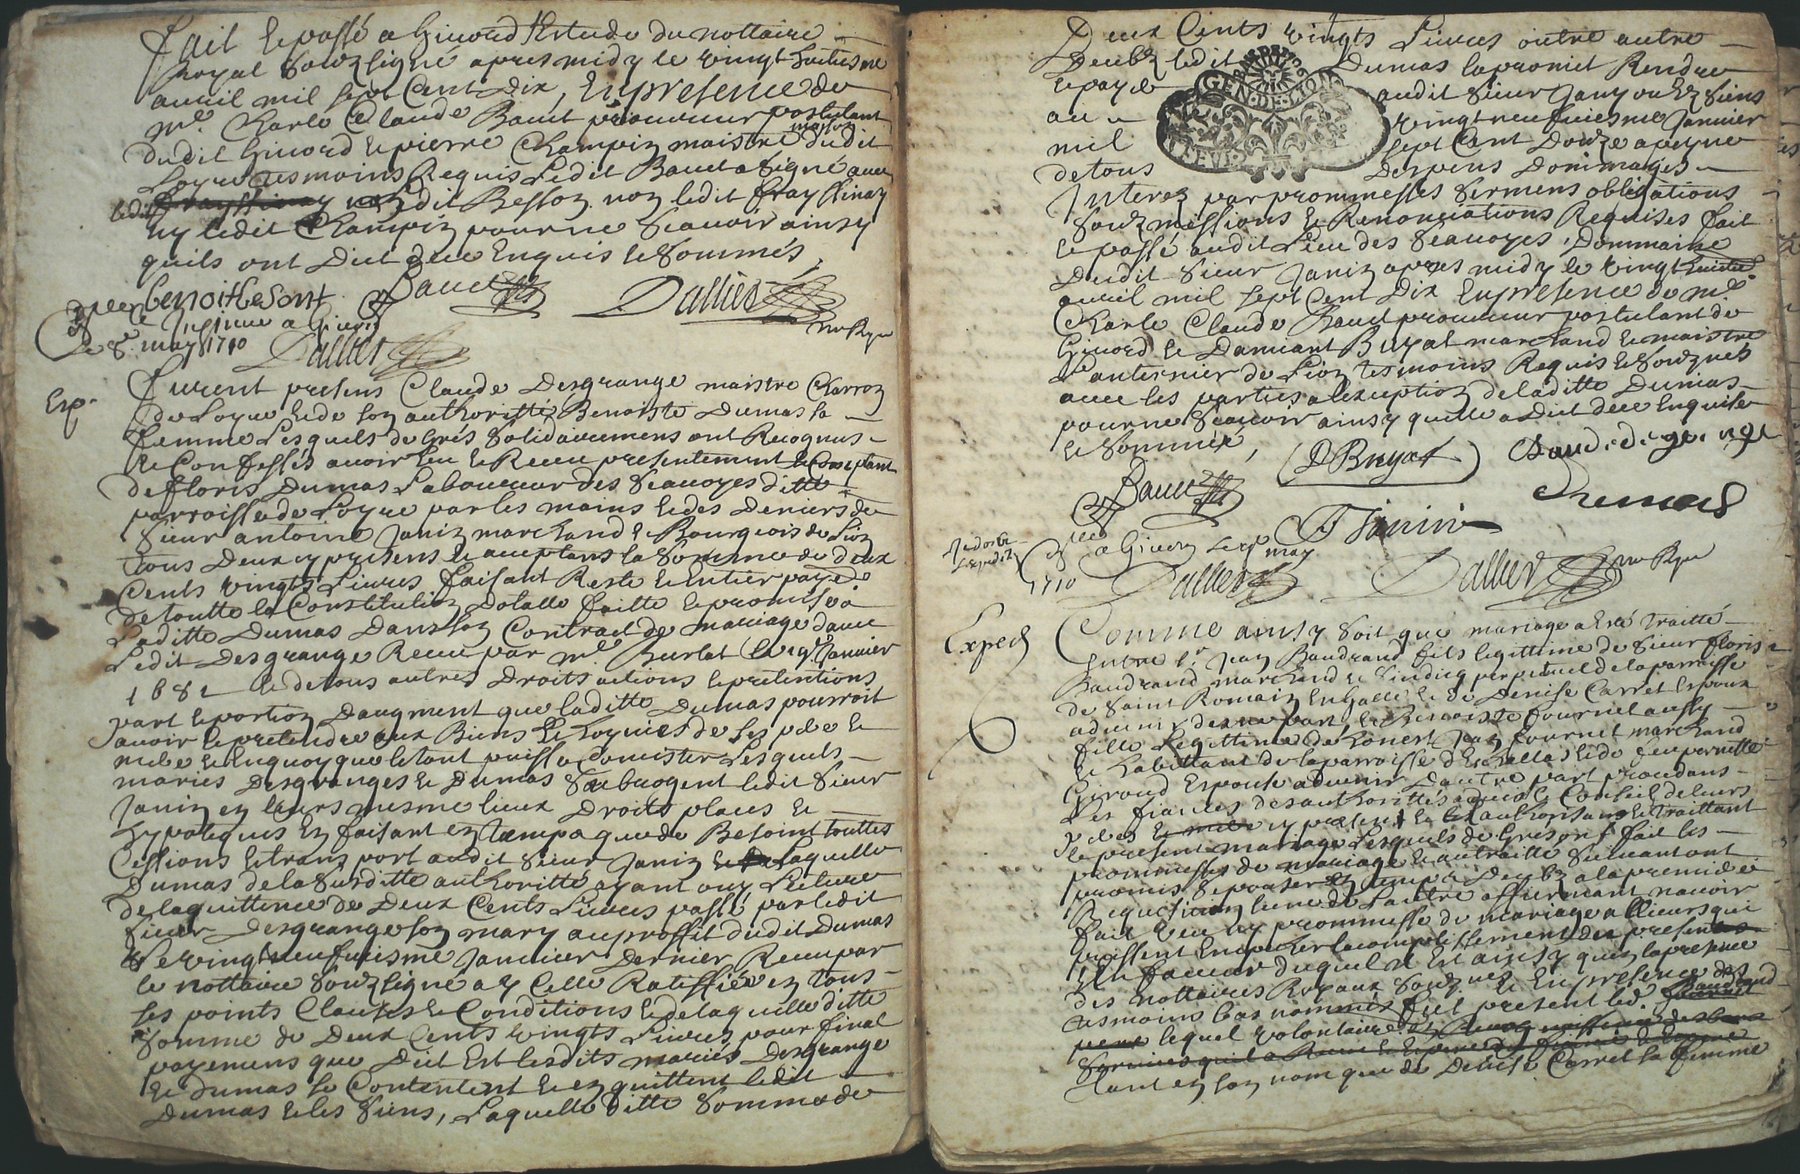 Fait & passé a Givord Estude du nottaire
Royal Soubzsigné apres midy le vingt huitiesme
avril mil sept Cent Dix, En presence de
Me. Charle Claude Bauet procureur postulant
dudit Givord & pierre Champin maistre masson dudit
Loyre tesmoins Requis Ledit Bauet a signé avec
ledit Besson non ledit frayssinay
ny ledit Champin pour ne Scavoir ainsy
quils ont Dict de ce Enquis & Sommés,
benoit besont Bauet Dallier
no Ryal
Insinué a Givord
le 8 may 1710 Dallier
Exp.
Furent presens Claude Desgrange maistre Charron
de Loyre & de son authoritté Benoiste Dumas sa
femme Lesquels de Grés Solidairemens ont Recognus
& Confessés avoir Eu & Receu presentement & Comptant
de floris Dumas Laboureur des Seauoyes ditte
parroisse de Loyre par les mains & des Deniers de
Sieur antoine Janin marchand & Bourgeois de Lion
tous Deux cy presens & acceptans la Somme de deux
Cents vingts Livres faisant Reste & Entier paye de
de toutte la Constitution dotalle faitte & promise a
Laditte Dumas Dans son Contract de mariage d'avec
Ledit Desgrange Receu par Me Burlat Janvier
& de tous autres Droits actions & pretentions
part & portion Daugment que laditte Dumas pourroit
avoir & pretendre aux Biens & hoyries de ses pere &
mere & En quoy que le tout puisse Concister Lesquels
mariés Desgranges & Dumas Subrogent ledit Sieur
Janin en leurs mesme lieux Droits places &
hypoteques En faisant en tempt que de Besoint touttes
Cessions & transport audit Sieur Janin Laquelle
Dumas de la Susditte authoritté ayant ouy Lecture
de la quittence de Deux Cents Livres passé par ledit
sieur Desgrange son mary au proffit dudit Dumas
Le vingt neufviesme Janvier Dernier Receu par
le nottaire Soubzsigné a y Celle Ratiffiée en tous
ses points Clauses & Conditions & de laquelle ditte
Somme de Deux Cents vingts Livres pour final
payemens que Dict Est lesdits mariés Desgrange
& Dumas se Contentent & en quittent ledit
Dumas & les Siens, Laquelle ditte Somme de
Deux Cents vingts Livres outre autre
Deubz ledit Dumas la promet Rendre
& paye audit Sieur Janin ou Es Siens
au vingt neufviesme Janvier
mil sept Cent Douze a peyne
de tous Despens Dommages
GEN·DE·LION
Interez par prommesses Sermens obligations
Soubzmissions & Renonciations Requises fait
& passé audit Lieu des Seauoyes, Dommaine
Dudit Sieur Janin apres midy le vingt huitie
avril mil sept Cent Dix En presence de Me
Charle Claude Bauet procureur postulant de
Givord & Damiant Buyat marchand & maistre
Lanternier de Lion tesmoins Requis & Soubznés
avec les parties a lexeption de laditte Dumas
pour ne Scavoir ainsy quelle a Dict de ce Enquise
& Sommée,
Bauet DBuyat Claude de grange
Dumas
A Janin
a Givord may
1710 Dallier Dallier no Ryal
Exped
Comme ainsy Soit que mariage a Esté traitté
Entre Sr Jean Baudrand fils legittime de Sieur floris
Baudrand marchand & Sindicq perpetuel de la parroisse
de Saint Romain En Galle & de Denise Carret Espoux
advenir dune part, & Benoiste fournel aussy
fille Legittime de honest Jean fournel marchand
& habittant de la parroisse dEschallas & de feu pernette
Giroud Espouse advenir Dautre part procedans
Les fiancés des authorittés advis & Conseil de leurs
peres cy presens & les authorisans & traittant
le present mariage Lesquels de Gres ont fait les
prommesses de mariage & autraitté Suivant ont
promis Sepouser En tempt Deubz a la premiere
Requesition lune de lautre affirmant navoir
fait Ny prommesse de mariage allieurs qui
puissent Empecher lacomplissement du present
En faveur duquel Et ainsy quen la presence
des Nottaires Royaux Soubznés & En presence des
tesmoins bas nommés fut present led. Baudrand
lequel volontairement
tant en son nom que de Denise Carret sa femme